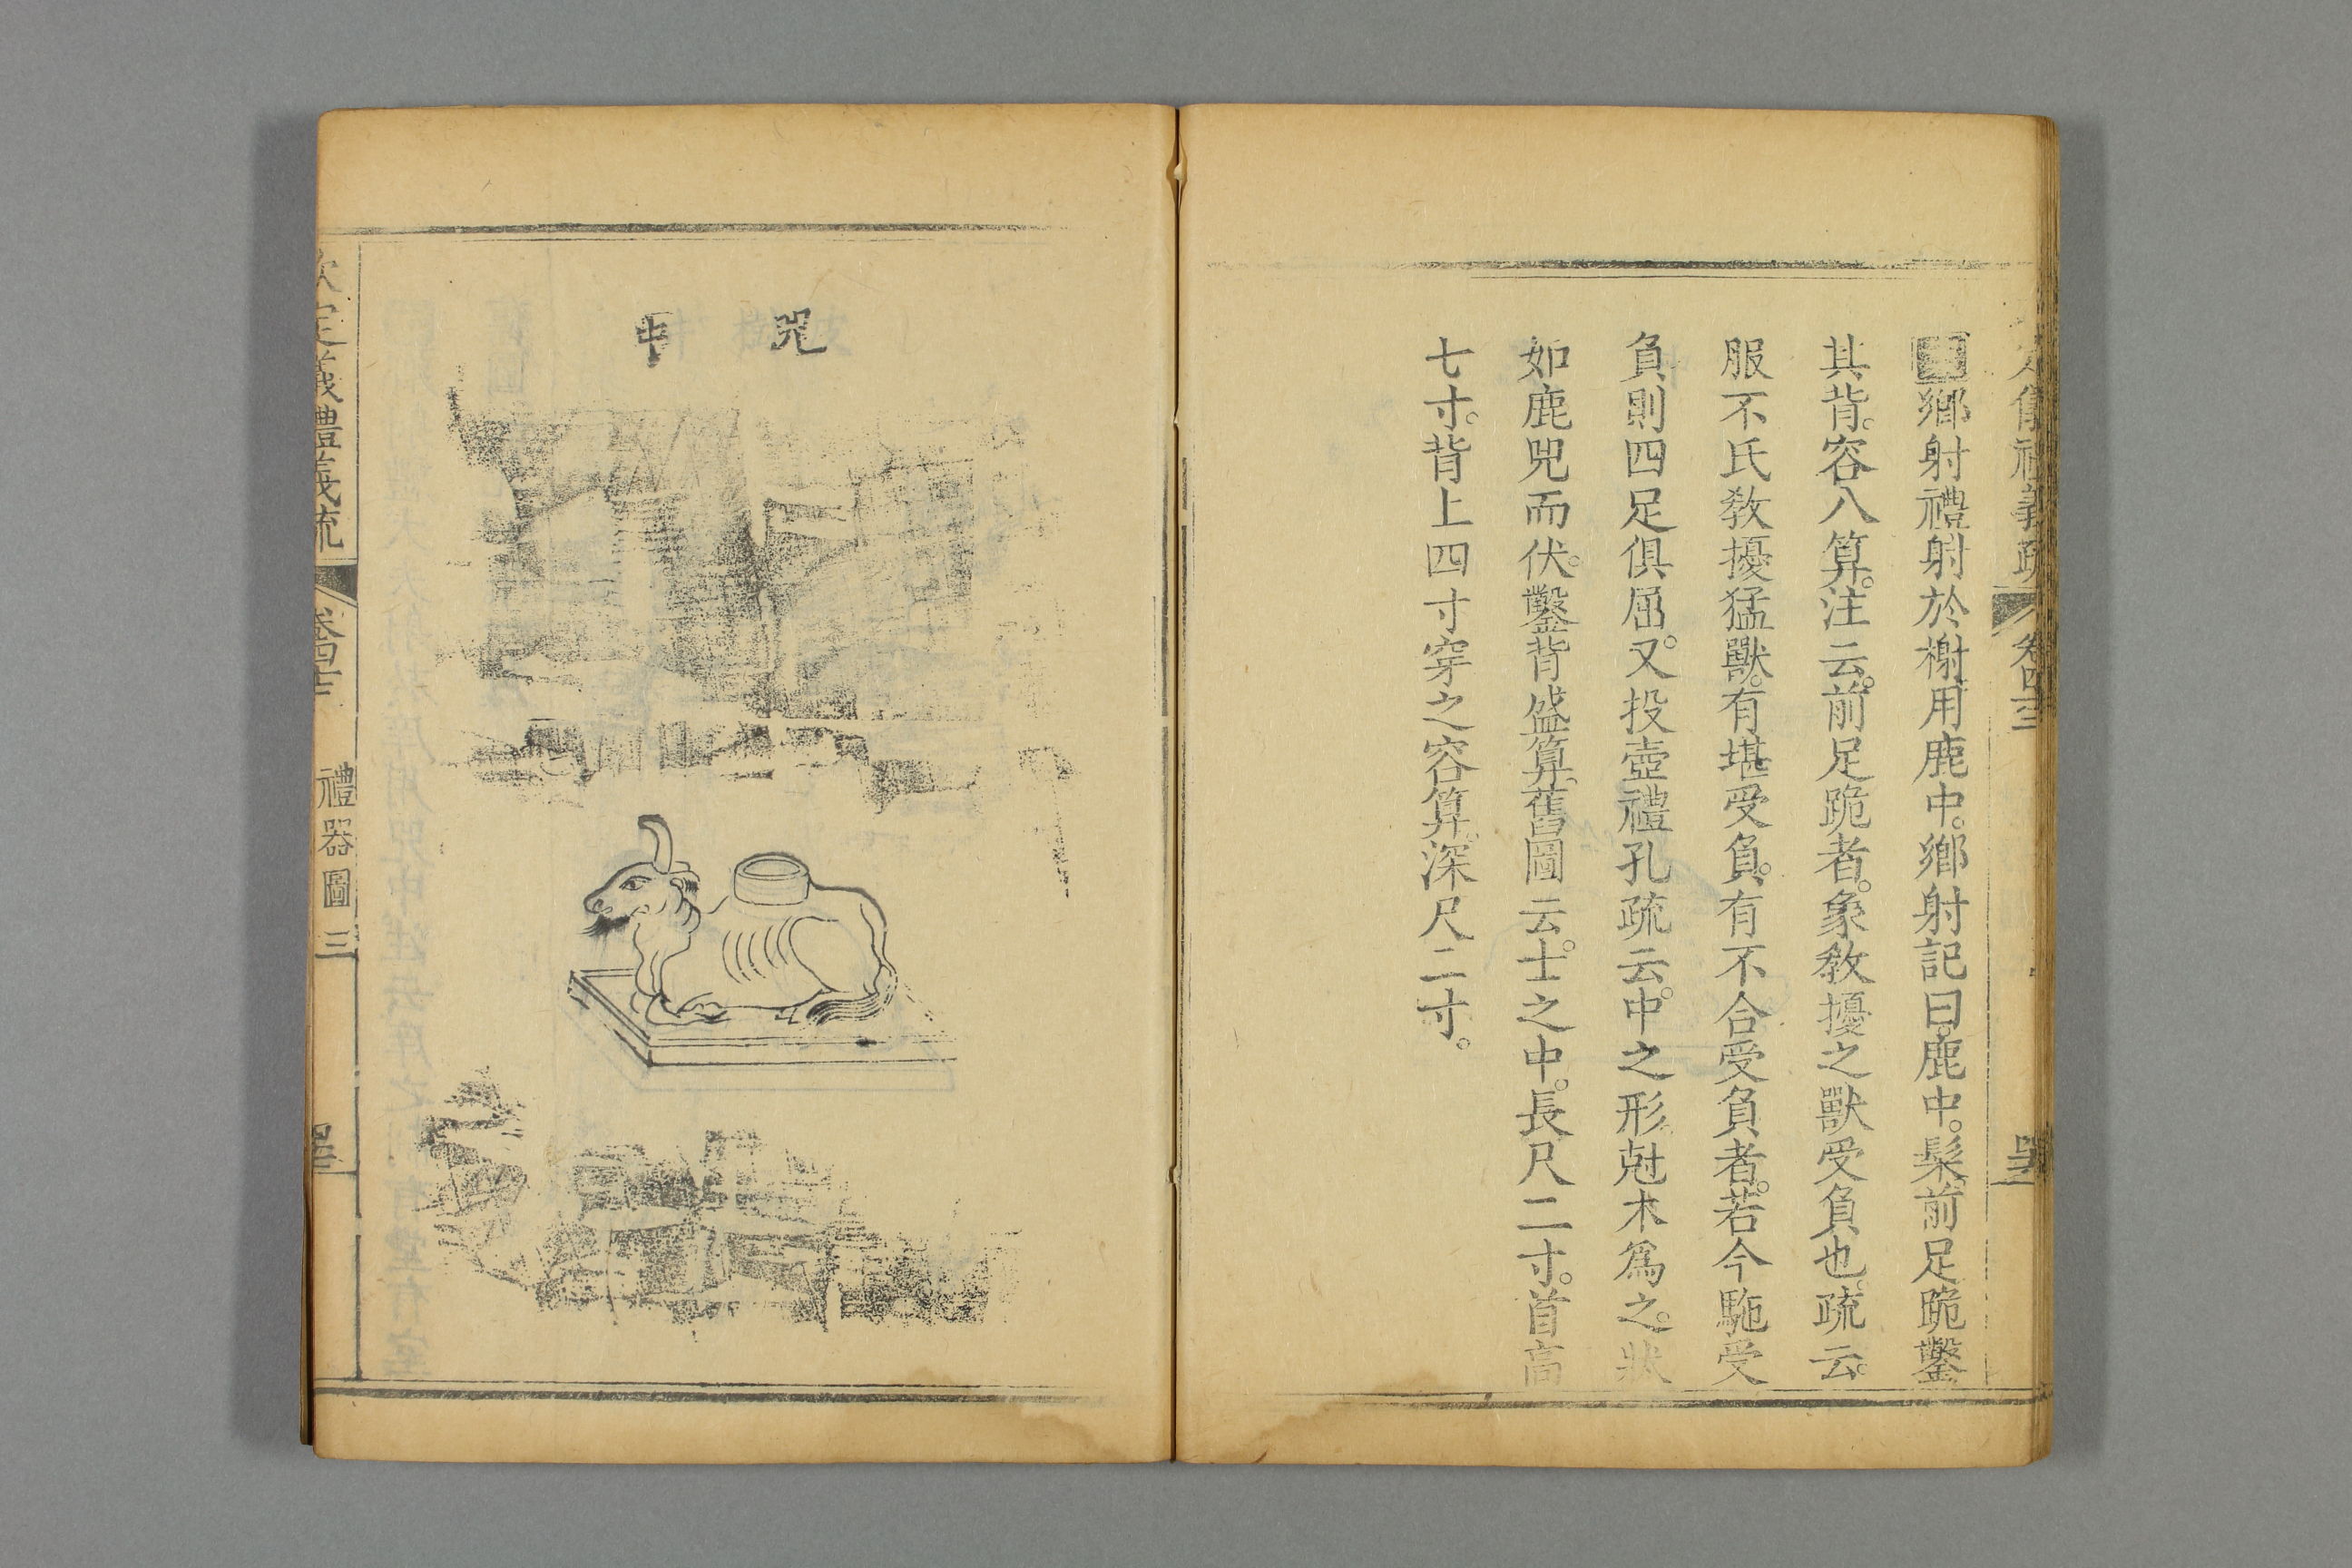 鄉射禮射於榭用鹿中。鄉射記曰。鹿中。髹前足跪鑿
其背。容八算。注云。前足跪者。象敎擾之獸受負也。疏云。
服不氏敎擾猛獸。有堪受負。有不合受負者。若今駞受
負則四足俱屈。又投壺禮孔疏云。中之形。尅木爲之。狀
如鹿兕而伏。鑿背盛算。舊圖云。士之中。長尺二寸。首高
七寸。背上四寸穿之容算。深尺二寸。
兕中
欽定儀禮義疏 卷四十三 禮器圖三